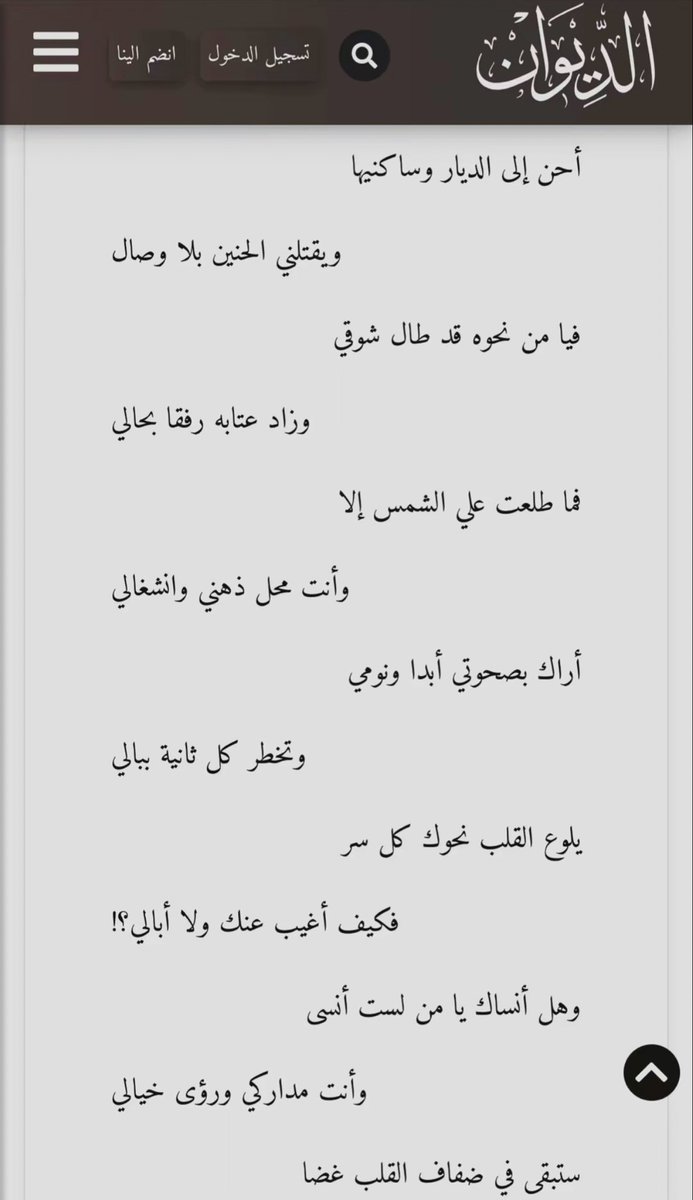 الدِّيوَان
تسجيل الدخول
انضم الينا
أحن إلى الديار وساكنيها
ويقتلني الحنين بلا وصال
فيا من نحوه قد طال شوقي
وزاد عتابه رفقا بحالي
فما طلعت علي الشمس إلا
وأنت محل ذهني وانشغالي
أراك بصحوتي أبدا ونومي
وتخطر كل ثانية ببالي
يلوع القلب نحوك كل سر
فكيف أغيب عنك ولا أبالي؟!
وهل أنساك يا من لست أنسى
وأنت مداركي ورؤى خيالي
ستبقى في ضفاف القلب غضا